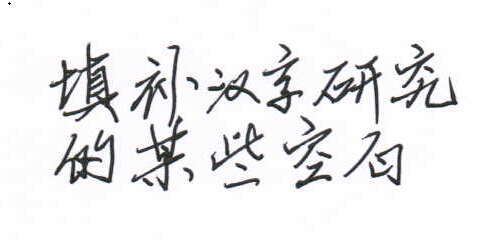 填补汉字研究
的某些空白